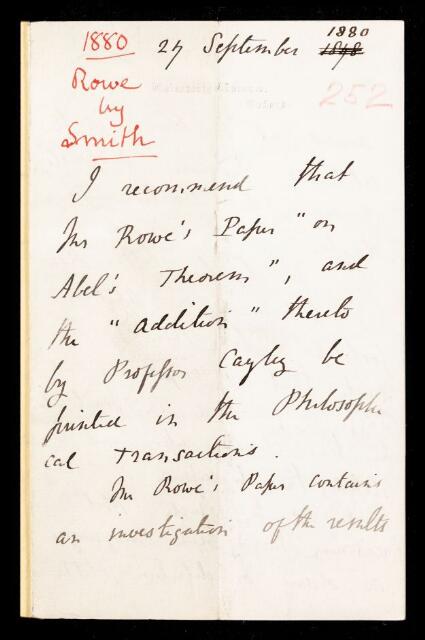 1880
Rowe
by
Smith
27 September 1880
1878
252
I recommend that
Mr Rowe's Paper "on
Abel's Theorem", and
the "addition" thereto
by Professor Cayley be
printed in the Philosophi
cal Transactions.
Mr Rowe's Paper contains
an investigation of the results